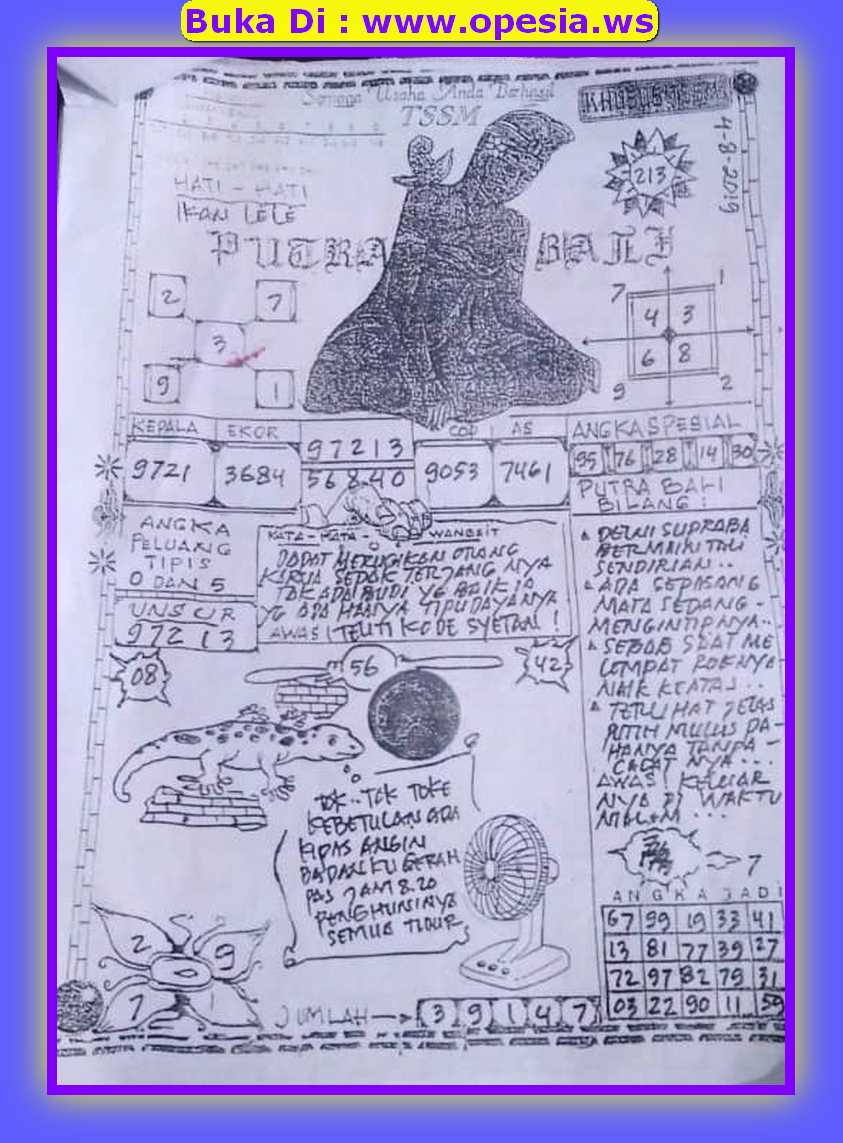 Buka Di : www.opesia.ws
Semoga Usaha Anda Berhasil
TSSM
4-8-2019
213
HATI - HATI
IKAN LELE
PUTRA BALI
2 7
3
9 1
7 1
4 3
6 8
9 2
KEPALA EKOR
9721 3684
97213
56840
COP AS
9053 7461
ANGKA SPESIAL
95 76 28 14 30
PUTRA BALI
BILANG :
ANGKA
PELUANG
TIPIS
0 DAN 5
UNSUR
97213
KATA - KATA - WANGSIT
DAPAT MERUGIKAN ORANG
KARNA SEPAK TERJANG NYA
TAK ADA BUDI YG BAIK IA
YG ADA HANYA TIPU DAYANYA
AWAS ! TELITI KODE SYETAN !
DEWI SUPRABA
BERMAIN TALI
SENDIRIAN..
ADA SEPASANG
MATA SEDANG -
MENGINTIPNYA..
SEBAB SAAT ME
LOMPAT ROKNYA
NAIK KEATAS...
TERLIHAT JELAS
PUTIH MULUS PA-
HANYA TANPA -
CACAT NYA...
AWAS ! KELUAR
NYA DI WAKTU
MALAM ...
08 56 42
TOK..TOK TOKE
KEBETULAN ADA
KIPAS ANGIN
BADANKU GERAH
PAS JAM 8.20
PENGHUNINYA
SEMUA TIDUR
7
ANGKA JADI
67 99 19 33 41
13 81 77 39 27
72 97 82 79 31
03 22 90 11 59
2 9
0
7 1
JUMLAH 3 9 1 4 7